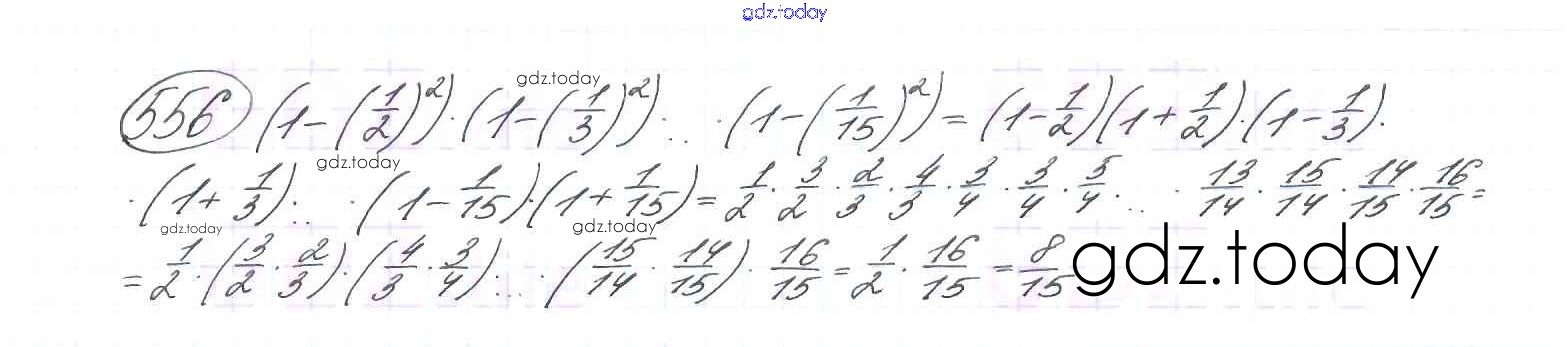 gdz.today
556 (1-(1/2)²)·(1-(1/3)²)·... ·(1-(1/15)²)=(1-1/2)(1+1/2)·(1-1/3)·
gdz.today
·(1+1/3)·... ·(1-1/15)·(1+1/15)=1/2·3/2·2/3·4/3·3/4·3/4·5/4·... ·13/14·15/14·14/15·16/15=
gdz.today
gdz.today
gdz.today
=1/2·(3/2·2/3)·(4/3·3/4)·... ·(15/14·14/15)·16/15=1/2·16/15=8/15
gdz.today